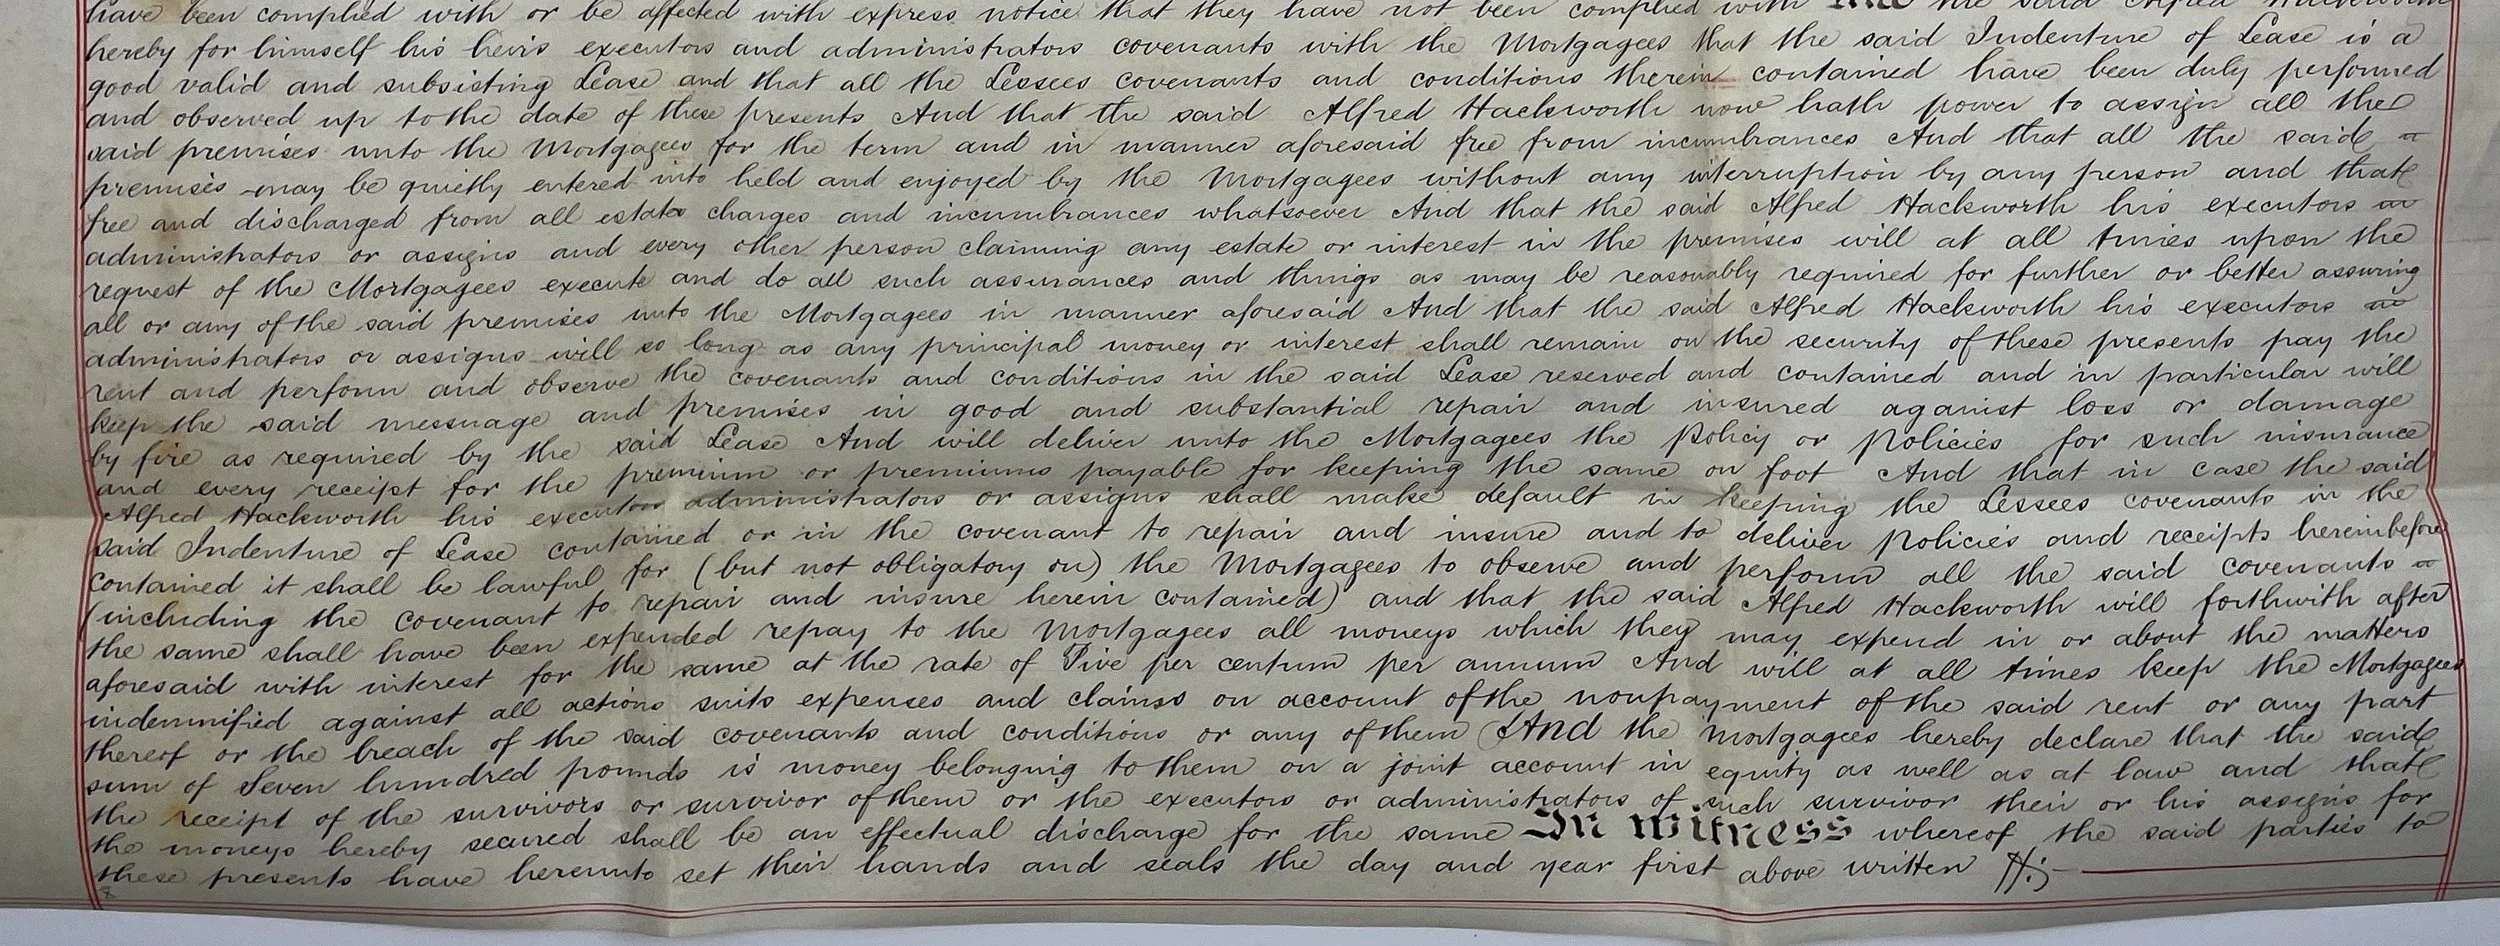 have been complied with or be affected with express notice that they have not been complied with And the said Alfred Hackworth
hereby for himself his heirs executors and administrators covenants with the Mortgagees that the said Indenture of Lease is a
good valid and subsisting Lease and that all the Lessees covenants and conditions therein contained have been duly performed
and observed up to the date of these presents And that the said Alfred Hackworth now hath power to assign all the
said premises unto the Mortgagees for the term and in manner aforesaid free from incumbrances And that all the said
premises may be quietly entered into held and enjoyed by the Mortgagees without any interruption by any person and that
free and discharged from all estates charges and incumbrances whatsoever And that the said Alfred Hackworth his executors
administrators or assigns and every other person claiming any estate or interest in the premises will at all times upon the
request of the Mortgagees execute and do all such assurances and things as may be reasonably required for further or better assuring
all or any of the said premises unto the Mortgagees in manner aforesaid And that the said Alfred Hackworth his executors
administrators or assigns will so long as any principal money or interest shall remain on the security of these presents pay the
rent and perform and observe the covenants and conditions in the said Lease reserved and contained and in particular will
keep the said messuage and premises in good and substantial repair and insured against loss or damage
by fire as required by the said Lease And will deliver unto the Mortgagees the policy or policies for such insurance
and every receipt for the premium or premiums payable for keeping the same on foot And that in case the said
Alfred Hackworth his executors administrators or assigns shall make default in keeping the Lessees covenants in the
said Indenture of Lease contained or in the covenant to repair and insure and to deliver policies and receipts hereinbefore
contained it shall be lawful for (but not obligatory on) the Mortgagees to observe and perform all the said covenants
(including the covenant to repair and insure herein contained) and that the said Alfred Hackworth will forthwith after
the same shall have been expended repay to the Mortgagees all moneys which they may expend in or about the matters
aforesaid with interest for the same at the rate of Five per centum per annum And will at all times keep the Mortgagees
indemnified against all actions suits expenses and claims on account of the nonpayment of the said rent or any part
thereof or the breach of the said covenants and conditions or any of them And the Mortgagees hereby declare that the said
sum of Seven hundred pounds is money belonging to them on a joint account in equity as well as at law and that
the receipt of the survivors or survivor of them or the executors or administrators of such survivor their or his assigns for
the moneys hereby secured shall be an effectual discharge for the same In witness whereof the said parties to
these presents have hereunto set their hands and seals the day and year first above written